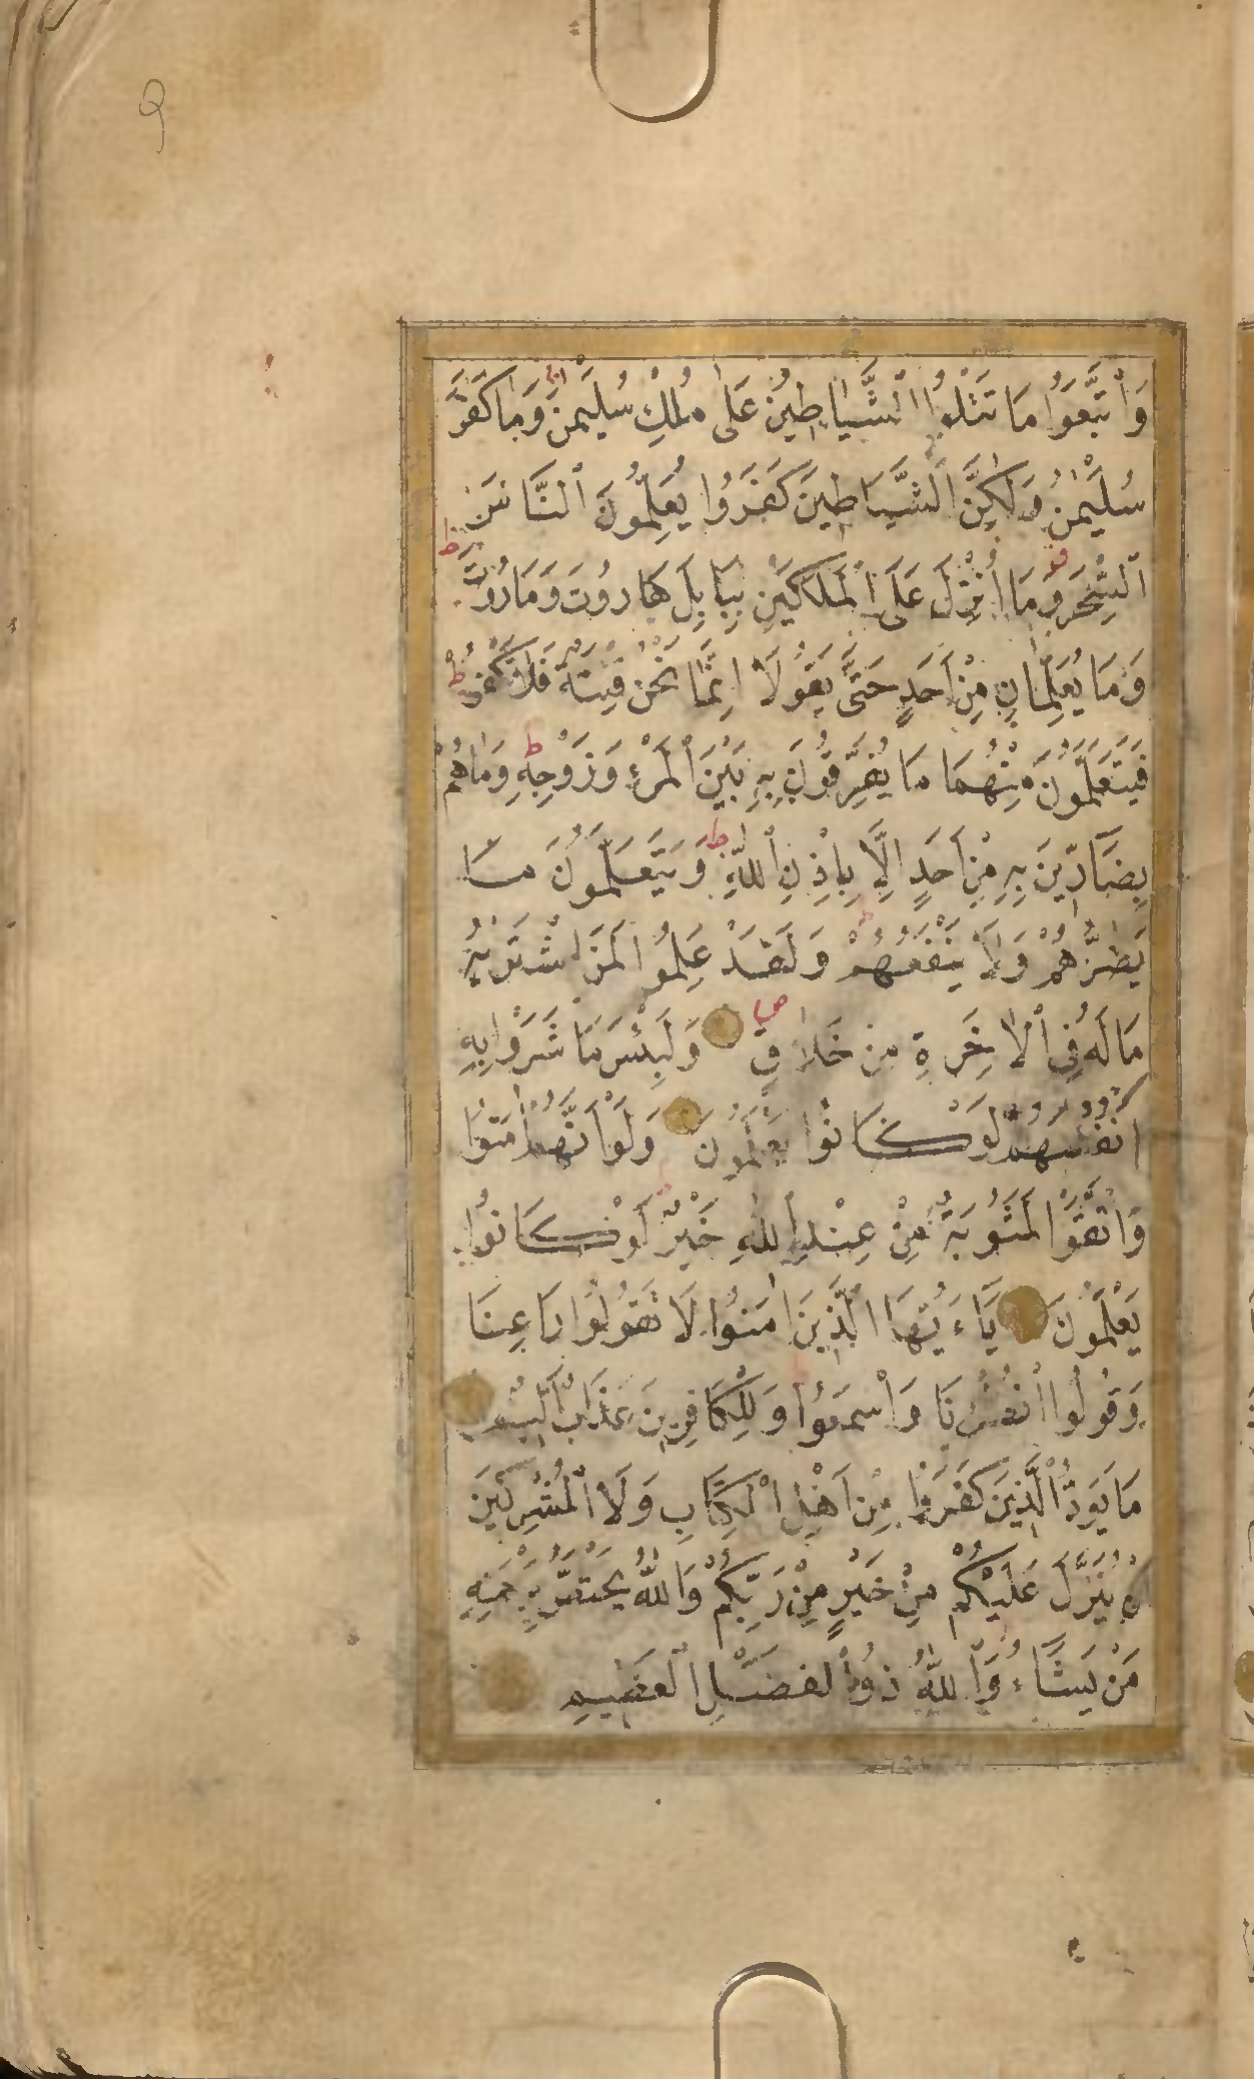 ٩
وَاتَّبَعُوا مَا تَتْلُوا الشَّيَاطِينُ عَلَى مُلْكِ سُلَيْمٰنَ وَمَا كَفَرَ
سُلَيْمٰنُ وَلٰكِنَّ الشَّيَاطِينَ كَفَرُوا يُعَلِّمُونَ النَّاسَ
السِّحْرَ وَمَا أُنْزِلَ عَلَى الْمَلَكَيْنِ بِبَابِلَ هَارُوتَ وَمَارُوتَ
وَمَا يُعَلِّمَانِ مِنْ اَحَدٍ حَتَّى يَقُولَا اِنَّمَا نَحْنُ فِتْنَةٌ فَلَا تَكْفُرْ
فَيَتَعَلَّمُونَ مِنْهُمَا مَا يُفَرِّقُونَ بِهِ بَيْنَ الْمَرْءِ وَزَوْجِهِ وَمَا هُمْ
بِضَارِّينَ بِهِ مِنْ اَحَدٍ اِلَّا بِاِذْنِ اللّٰهِ وَيَتَعَلَّمُونَ مَا
يَضُرُّهُمْ وَلَا يَنْفَعُهُمْ وَلَقَدْ عَلِمُوا لَمَنِ اشْتَرٰيهُ
مَا لَهُ فِي الْاٰخِرَةِ مِنْ خَلَاقٍ وَلَبِئْسَ مَا شَرَوْا بِهِ
اَنْفُسَهُمْ لَوْ كَانُوا يَعْلَمُونَ وَلَوْ اَنَّهُمْ اٰمَنُوا
وَاتَّقَوْا لَمَثُوبَةٌ مِنْ عِنْدِ اللّٰهِ خَيْرٌ لَوْ كَانُوا
يَعْلَمُونَ يَاءَيُّهَا الَّذِينَ اٰمَنُوا لَا تَقُولُوا رَاعِنَا
وَقُولُوا انْظُرْنَا وَاسْمَعُوا وَلِلْكَافِرِينَ عَذَابٌ اَلِيمٌ
مَا يَوَدُّ الَّذِينَ كَفَرُوا مِنْ اَهْلِ الْكِتَابِ وَلَا الْمُشْرِكِينَ
اَنْ يُنَزَّلَ عَلَيْكُمْ مِنْ خَيْرٍ مِنْ رَبِّكُمْ وَاللّٰهُ يَخْتَصُّ بِرَحْمَتِهِ
مَنْ يَشَاءُ وَاللّٰهُ ذُو الْفَضْلِ الْعَظِيمِ